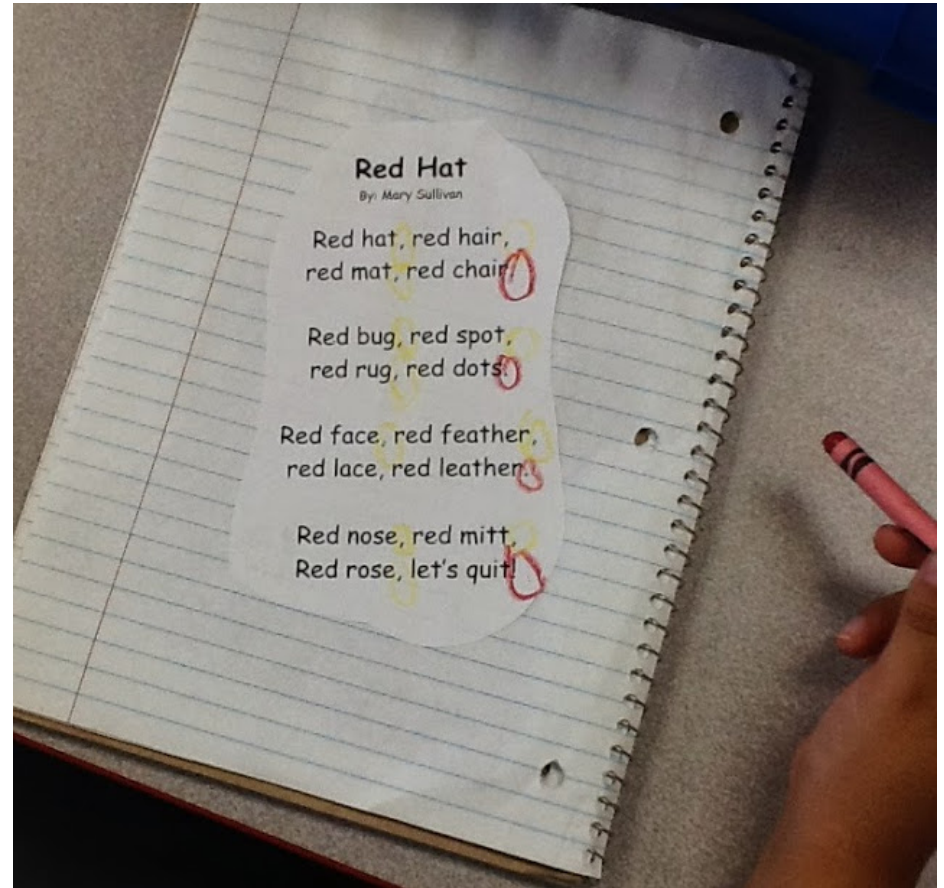 Red Hat
By: Mary Sullivan
Red hat, red hair,
red mat, red chair!
Red bug, red spot,
red rug, red dots.
Red face, red feather,
red lace, red leather.
Red nose, red mitt,
Red rose, let's quit!